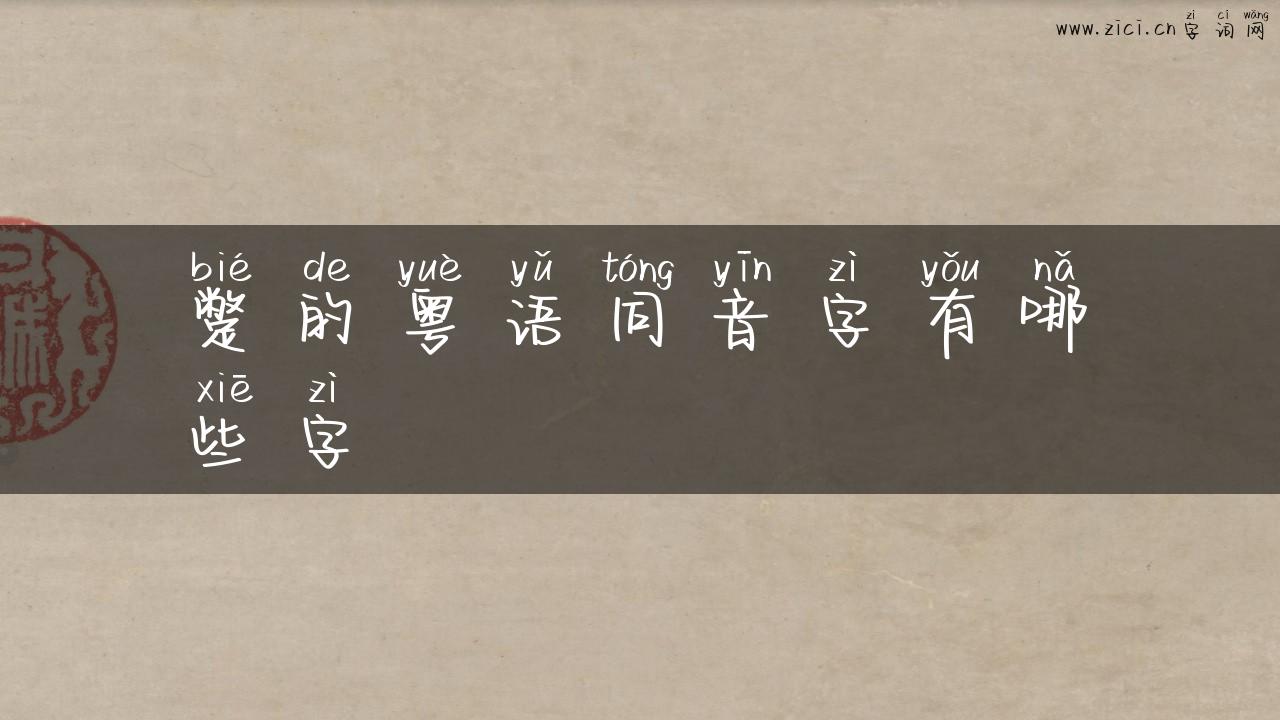 zì cí wǎng
www.zici.cn字词网
bié de yuè yǔ tóng yīn zì yǒu nǎ
蹩的粤语同音字有哪
xiē zì
些字